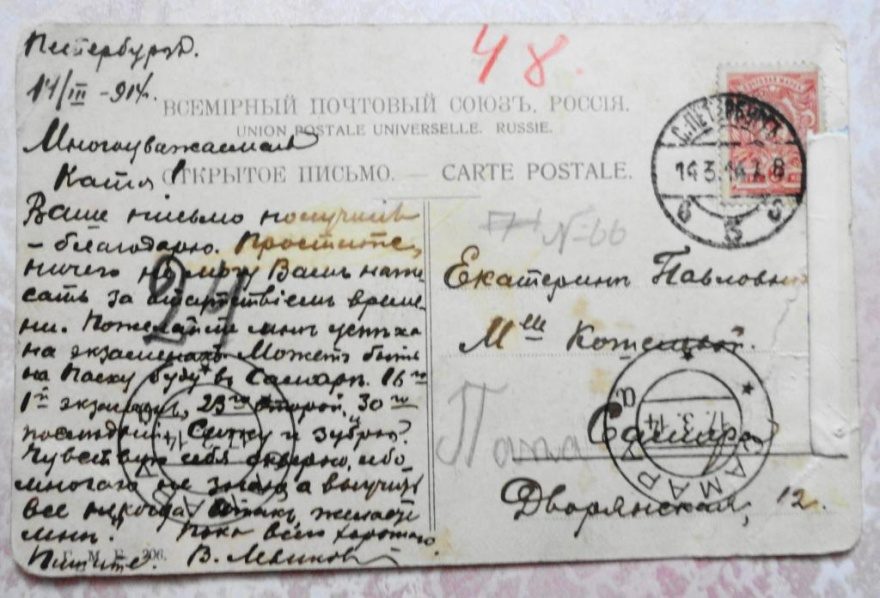 Петербургъ.
14/III - 914.
48.
ВСЕМІРНЫЙ ПОЧТОВЫЙ СОЮЗЪ. РОССІЯ.
UNION POSTALE UNIVERSELLE. RUSSIE.
ОТКРЫТОЕ ПИСЬМО. — CARTE POSTALE.
Многоуважаемая
Катя!
Ваше письмо получилъ
- благодарю. Простите,
ничего не могу Вамъ напи-
сать за отсутствіемъ време-
ни. Пожелайте мнѣ успѣха
на экзаменахъ. Можетъ быть
на Пасху буду въ Самарѣ. 16го
1й экзаменъ, 23го второй, 30го
послѣдній. Сижу и зубрю.
Чувствую себя скверно, ибо
многаго не знаю, а выучить
все некогда.
мнѣ. Пока всего хорошаго.
Пишите. В.
24
С.ПЕТЕРБУРГЪ
14.3.14
№66
Екатеринѣ Павловнѣ
Mlle
Самара
Дворянская, 12.
САМАРА
17.3.14
306.